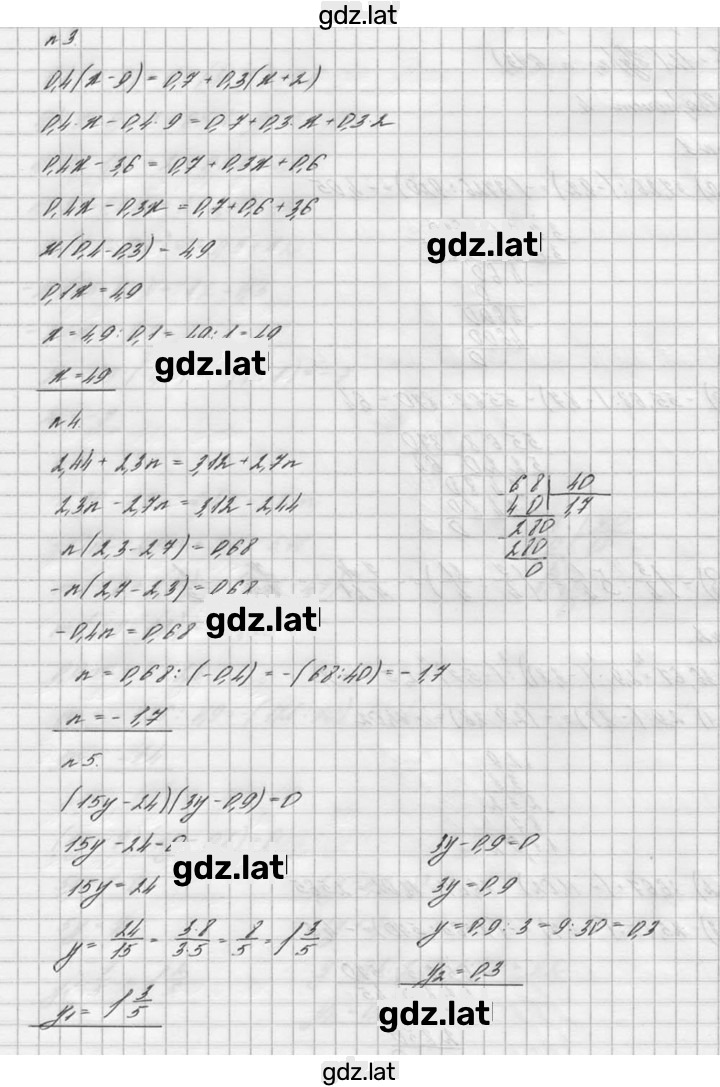 gdz.lat
n 3.
0,4(x-9)=0,7+0,3(x+2)
0,4·x-0,4·9=0,7+0,3·x+0,3·2
0,4x-3,6=0,7+0,3x+0,6
0,4x-0,3x=0,7+0,6+3,6
x(0,4-0,3)=4,9
gdz.lat
0,1x=4,9
x=4,9:0,1=49:1=49
gdz.lat
x=49
n 4.
2,44+2,3n=3,12+2,7n
2,3n-2,7n=3,12-2,44
n(2,3-2,7)=0,68
-n(2,7-2,3)=0,68
68 40
40 1,7
-280
280
0
gdz.lat
-0,4n=0,68
n=0,68:(-0,4)=-(68:40)=-1,7
n=-1,7
n 5.
(15y-24)(3y-0,9)=0
15y-24=0
gdz.lat
15y=24
y=24/15=3·8/3·5=8/5=1 3/5
y₁=1 3/5
3y-0,9=0
3y=0,9
y=0,9:3=9:30=0,3
y₂=0,3
gdz.lat
gdz.lat